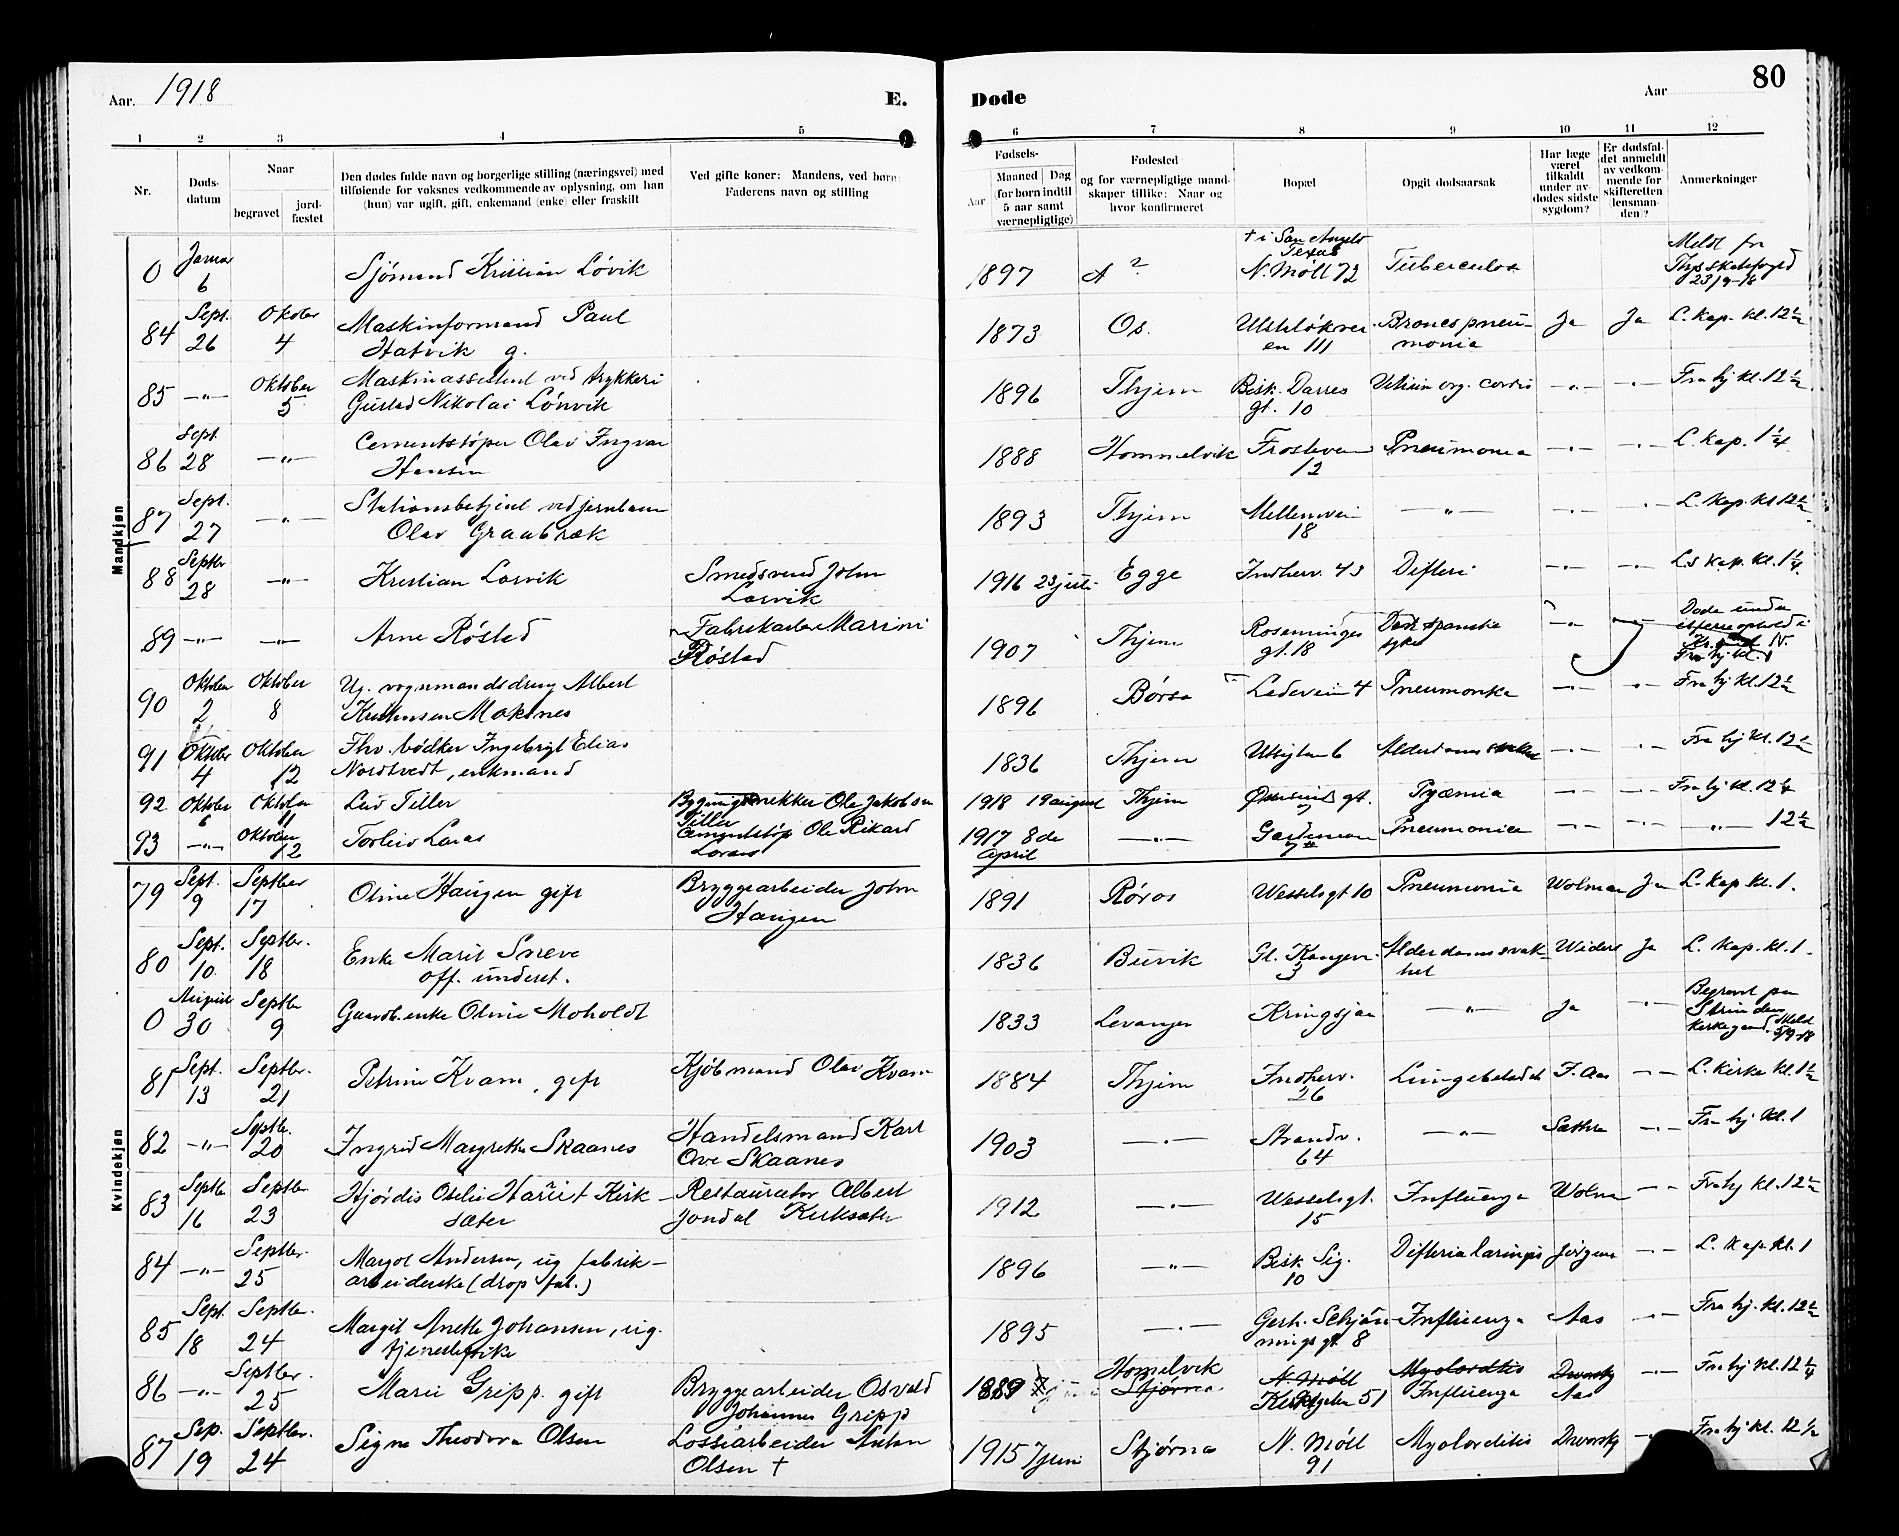 Aar. 1918
E.
Døde
Aar
80
1 2 3 4 5 6 7 8 9 10 11 12
Nr.
Døds-
datum
Naar
begravet
jord-
fæstet
Den dødes fulde navn og borgerlige stilling (næringsvei) med
tilføiende for voksnes vedkommende av oplysning, om han
(hun) var ugift, gift, enkemand (enke) eller fraskilt
Ved gifte koner: Mandens, ved børn:
Faderens navn og stilling
Fødsels-
Aar
Maaned Dag
(for børn indtil
5 aar samt
værnepligtige)
Fødested
og for værnepligtige mand-
skaper tillike: Naar og
hvor konfirmeret
Bopæl
Opgit dødsaarsak
Har læge
været
tilkaldt
under av-
dødes sidste
sygdom?
Er dødsfal-
det anmeldt
av vedkom-
mende for
skifteretten
(lensman-
den)?
Anmerkninger
Mandkjøn
0 Januar 6 Sjömand Kristian Lövik 1897 ? † i San Angelo Texas N. Möll 72 Tuberculos Meldt fra 23/9-18
84 Sept. 26 Oktober 4 Maskinformand Paul
Hatvik g. 1873 Os. 111 Broncopneu-
monia Ja Ja L. kap. kl. 12½
85 —"— Oktober 5 Maskinassistent ved trykkeri
Gustav Nikolai Lönvik 1896 Thjem Bisk. Darres
gt. 10 Vitium org. cordis —"— —"— Fra hj kl. 12½
86 Sept 28 —"— Cementstöper Olav Ingvar
Hansen 1888 Hommelvik Frostaven
12 Pneumonia —"— —"— L. kap. 1¼
87 Sept. 27 —"— Stationsbetjent ved jernbanen
Olav Graabræk 1893 Thjem Mellemvei
18 —"— —"— —"— L. kap. kl 12½
88 Septbr 28 —"— Kristian Lorvik Smedsvend John
Lorvik 1916 23 juli Egge Indherv. 43 Difteri —"— —"— L.s kap. kl. 1¼
89 —"— —"— Arne Röstad Fabrikarb. Marius
Röstad 1907 Thjem
gt. 18 Den spanske
syke —"— Döde under
90 Oktober 2 Oktober 8 Ug. vognmandsdreng Albert
Kristensen Moksnes 1896 Börsa Ladevein 4 Pneumonia —"— —"— Fra hj kl. 12½
91 Oktober 4 Oktober 12 Fhv. bödker Ingebrigt Elias
Nordtvedt, enkmand 1836 Thjem Utsigten 6 —"— —"— Fra hj kl. 12½
92 Oktober 6 Oktober 11 Leiv Tiller Bygningssnekker Ole Jakobsen
Tiller 1918 19 august Thjem Pyæmia —"— —"— Fra hj kl. 12¼
93 —"— Oktober 12 Torleiv Laras Cementstöp Ole Rikard
1917 8de
April —"— Pneumonia —"— —"— —"— 12½
Kvindekjøn
79 Sept. 9 Septber 17 Oline Haugen gift Bryggearbeider John
Haugen 1891 Röros Wesselsgt 10 Pneumonia Wolman Ja L. kap kl. 1.
80 Sept. 10 Septbr. 18 Enke Marit Sneve
off. underst. 1836 Buvik Gl. Kongev.
3 Alderdomssvak-
het Widerø Ja L. kap. kl. 1.
0 August 30 Septbr 9 Gaardb. enke Oline Moholdt 1833 Levanger Kringsjaa —"— Ja —"— Begravet paa
Strinden
kirkegaard. Meldt 5/9-18
81 Sept. 13 Septbr. 21 Petrine Kvam, gift Kjöbmand Olav Kvam 1884 Thjem Indherv.
26 F. Aas —"— L. Kirke kl. 1½
82 —"— Septbr. 20 Ingrid Margrethe Skaanes Handelsmand Karl
Ove Skaanes 1903 —"— Strandv.
64 —"— Sæther —"— Fra hj kl. 1
83 Septbr 16 Septbr 23 Hjördis Otelie Harriet Kirk-
sæter Restauratör Albert
Jondal Kirksæter 1912 Wesselsgt.
15 Influenza Wolman —"— Fra hj kl. 12½
84 —"— Septbr. 25 Margot Andersen, ug fabrik-
arbeiderske (drop fab.) 1896 —"— Bisk. Sig.
10 Difteria laringis Jörgens —"— L. kap. kl. 1
85 Sept. 18 Septbr. 24 Margit Anette Johansen, ug.
tjenestepike 1895 —"— Gerh. Schjön-
ningsgt 8 Influenza Aas —"— Fra hj. kl. 12½
86 —"— Septber. 25 Marie Gripp. gift Bryggearbeider Osvald
Johannes Gripp 1889 Homelvik
Stjørna N. Möll
51 Myolorditis
Influenza
Aas —"— Fra hj kl. 12¼
87 Sep. 19 Septbr. 24 Signe Theodora Olsen Lossearbeider Anton
Olsen † 1915 7 juni Stjørna N. Möll
91 Myolorditis —"— Fra hj kl. 12½